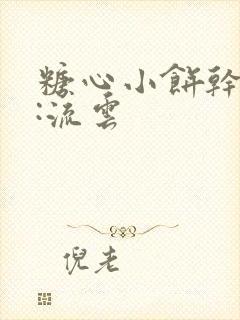 糖心小餅幹
:流雲
倪老